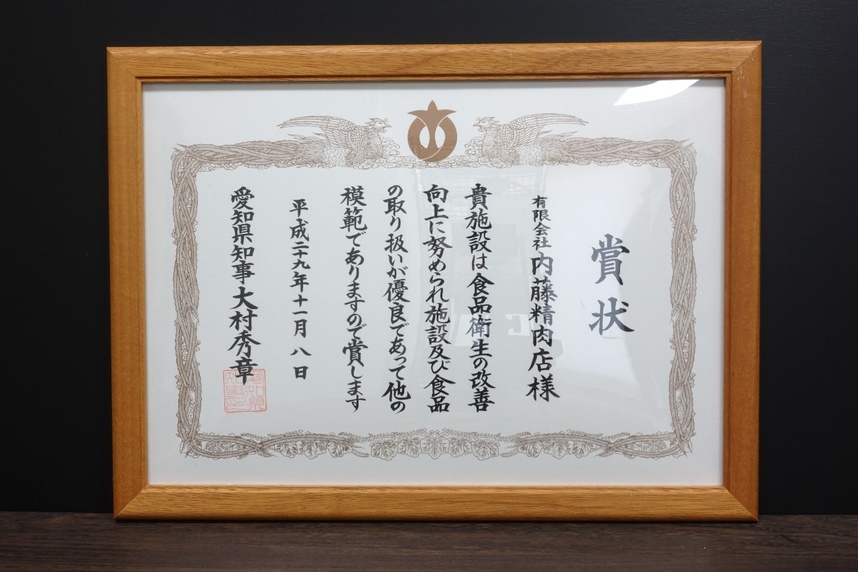 賞状
有限会社 内藤精肉店様
貴施設は食品衛生の改善
向上に努められ施設及び食品
の取り扱いが優良であって他の
模範でありますので賞します
平成二十九年十一月 八 日
愛知県知事 大村秀章